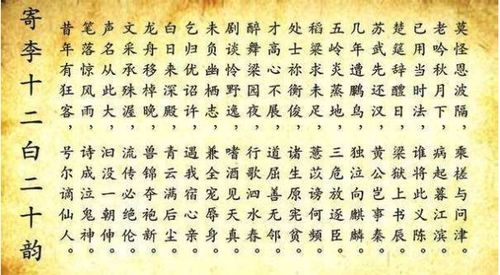 寄李十二白二十韵
昔年有狂客，号尔谪仙人。
笔落惊风雨，诗成泣鬼神。
声名从此大，汩没一朝伸。
文采承殊渥，流传必绝伦。
龙舟移棹晚，兽锦夺袍新。
白日来深殿，青云满后尘。
乞归优诏许，遇我宿心亲。
未负幽栖志，兼全宠辱身。
剧谈怜野逸，嗜酒见天真。
醉舞梁园夜，行歌泗水春。
才高心不展，道屈善无邻。
处士祢衡俊，诸生原宪贫。
稻粱求未足，薏苡谤何频。
五岭炎蒸地，三危放逐臣。
几年遭鵩鸟，独泣向麒麟。
苏武先还汉，黄公岂事秦。
楚筵辞醴日，梁狱上书辰。
已用当时法，谁将此义陈。
老吟秋月下，病起暮江滨。
莫怪恩波隔，乘槎与问津。